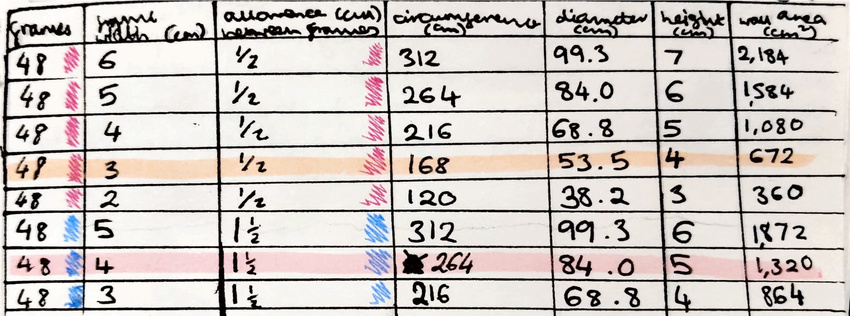 frames frame width (cm) allowance (cm) between frames circumference (cm) diameter (cm) height (cm) wall area (cm²)
48 6 1/2 312 99.3 7 2,184
48 5 1/2 264 84.0 6 1,584
48 4 1/2 216 68.8 5 1,080
48 3 1/2 168 53.5 4 672
48 2 1/2 120 38.2 3 360
48 5 1 1/2 312 99.3 6 1,872
48 4 1 1/2 264 84.0 5 1,320
48 3 1 1/2 216 68.8 4 864